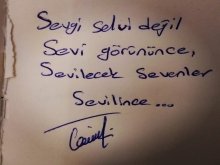 Sevgi selvi değil
Sevi görününce,
Sevilecek Sevenler
Sevilince...